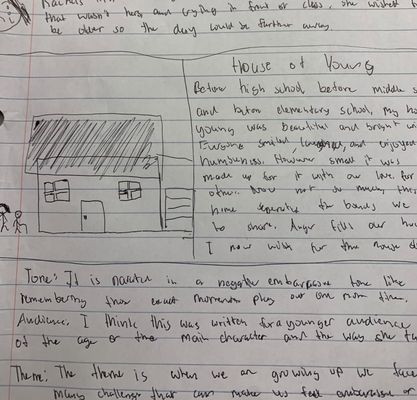 that wasn't hers and crying in front of class, she wished to
be older so the day would be further away.
House of Young
Before high school before middle s
and before elementary school, my ho
young was beautiful and bright o
Everyone smiled, laughed, and enjoyed
humbleness. However small it was
made up for it with our love for
other. Now not so much, the
home seperate the bonds we
to share. Anger fills our hou
I now wish for the house o
Tone: It is narrated in a negative embarrassive tone like
remembering those exact moments play out one more time.
Audience: I think this was written for a younger audience
of the age of the main character and the way she ta
Theme: The theme is when we are growing up we face
many challenges that can make us feel embarrassed or